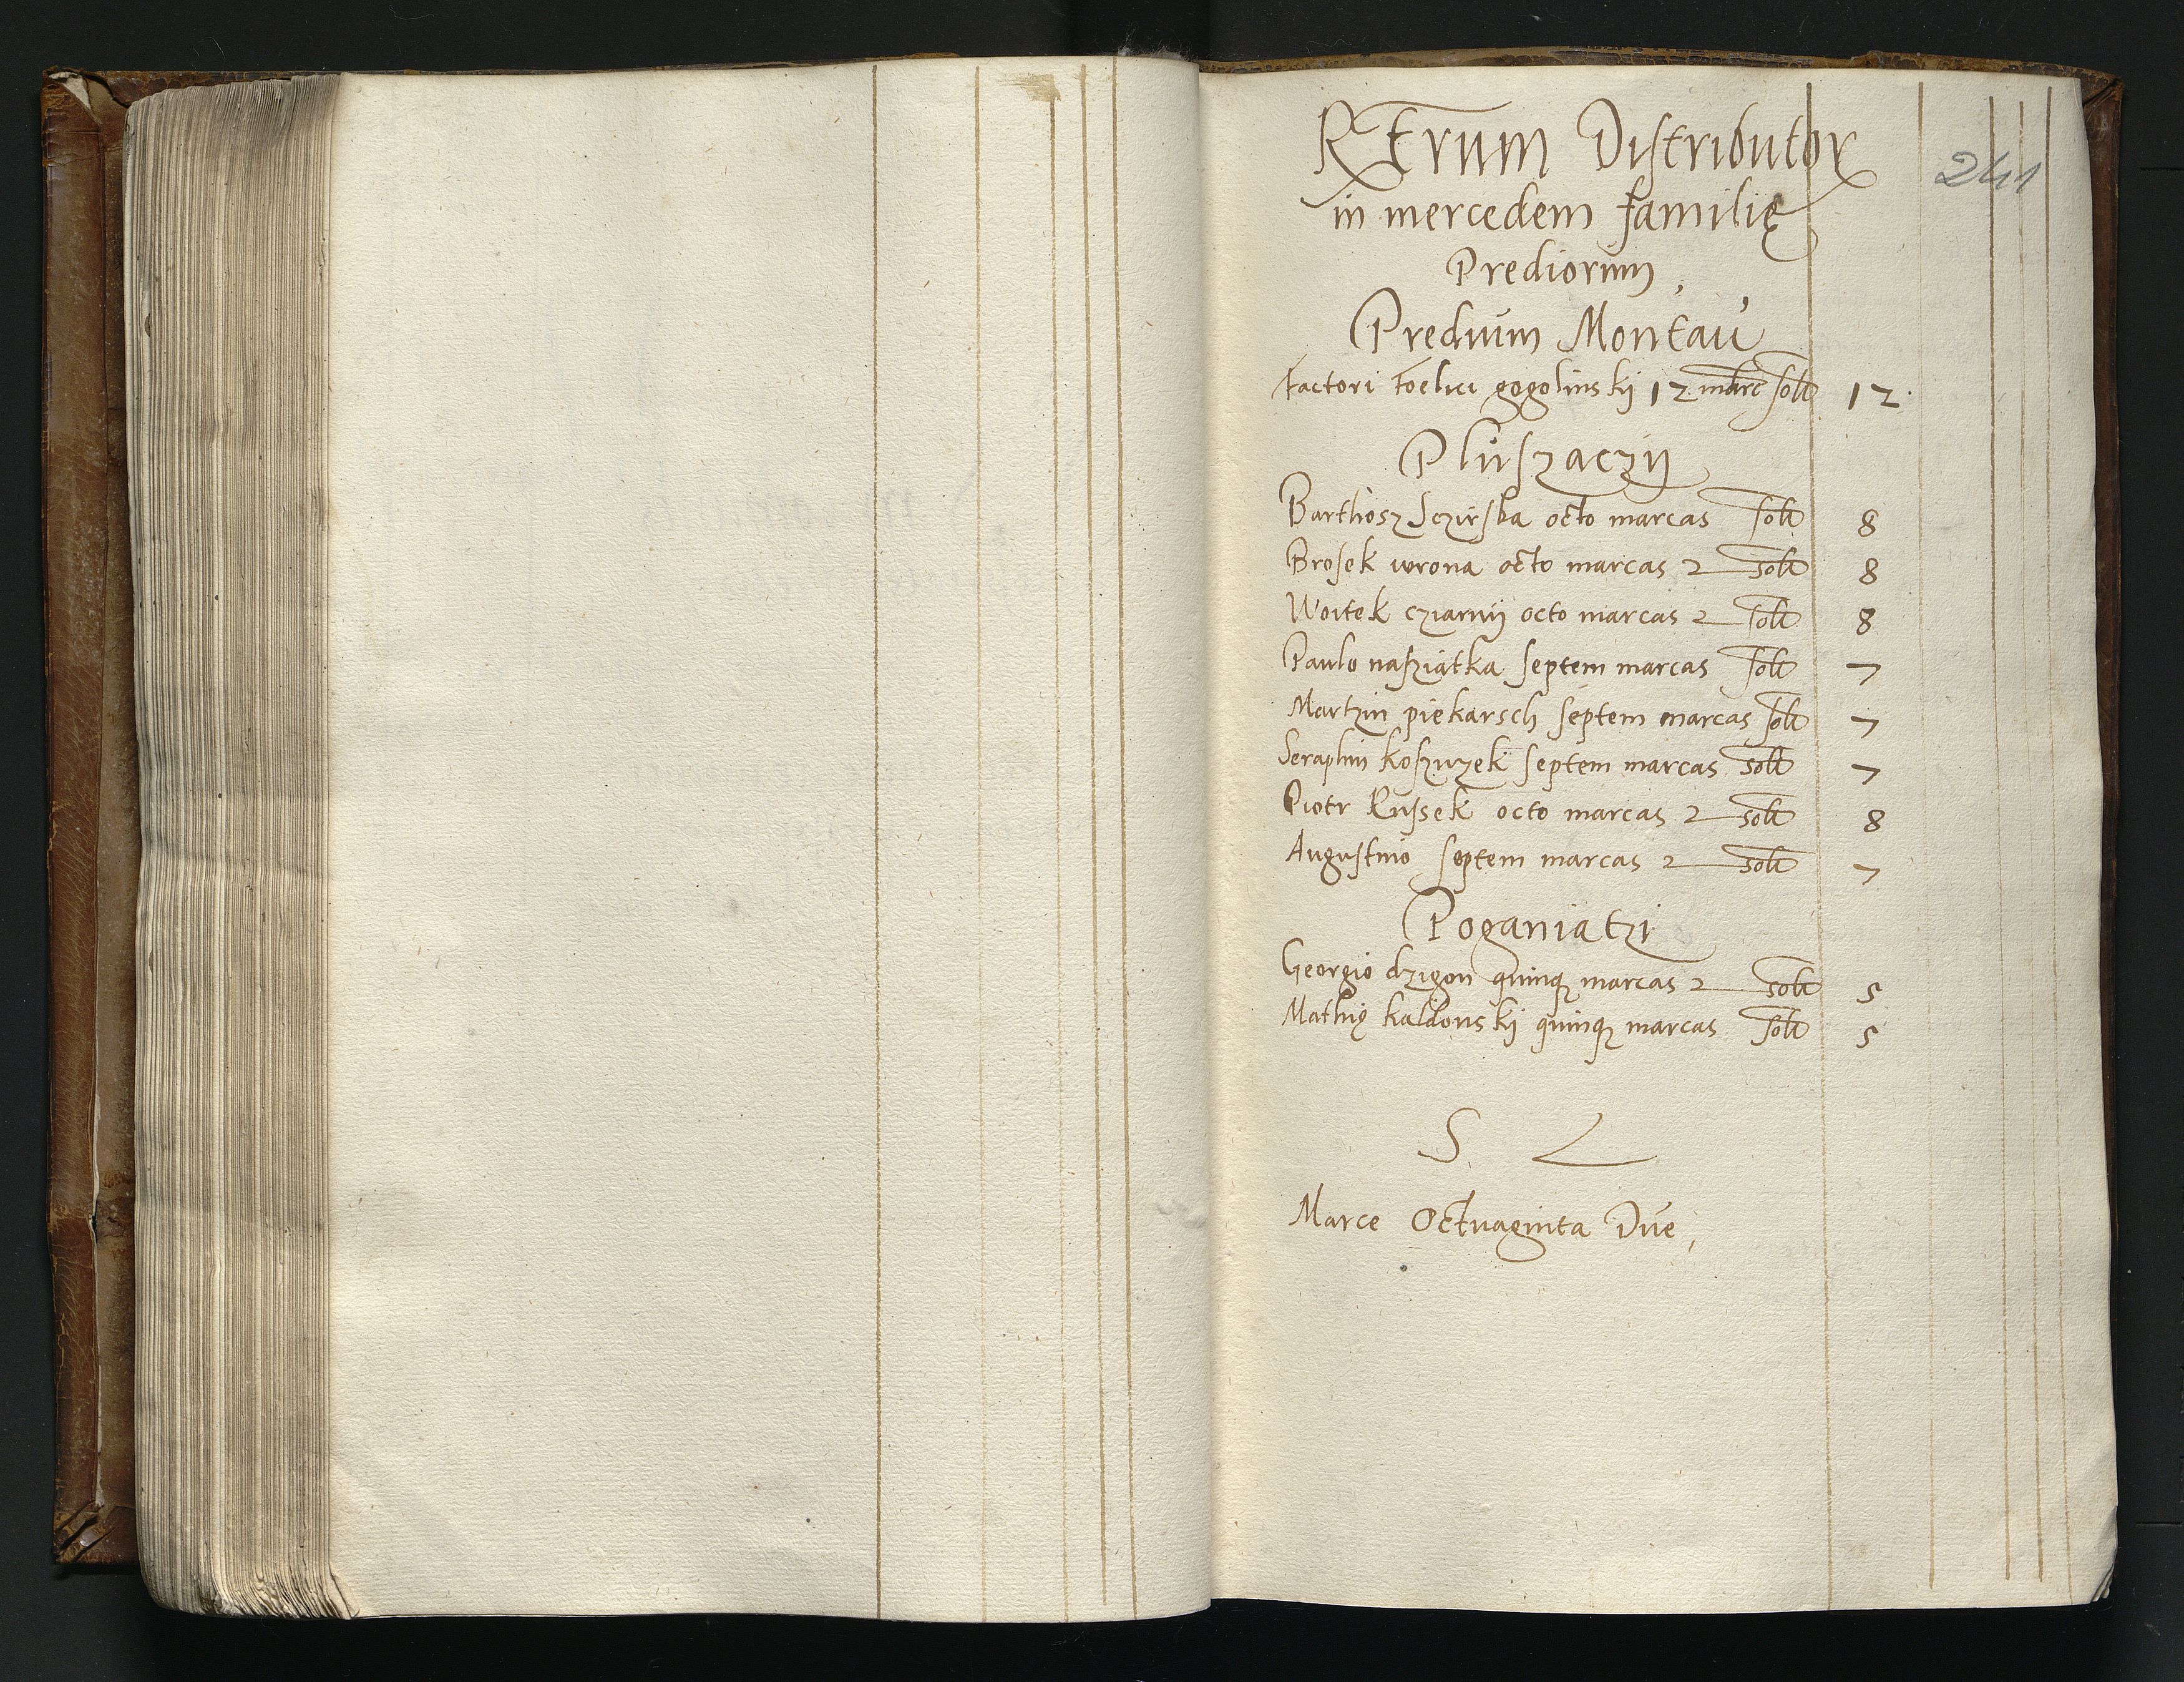 RErum Distributor
241
in mercedem familię
Prediorum
Predium Montaú
Factori Foelici gogolinskij 12 marc solt 12.
Plúszaczÿ
Barthosz octo marcas solt 8
Brosek wrona octo marcas 2 solt 8
Woitek cziarnÿ octo marcas 2 solt 8
Paulo nasziatka septem marcas solt 7
Martzin piekarsch septem marcas solt 7
Seraphin septem marcas solt 7
Piotr Russek octo marcas 2 solt 8
Augustino septem marcas 2 solt 7
Poganiatzi
Georgio dzigon quinqꝫ marcas 2 solt 5
Mathię kaldonskij quinqꝫ marcas solt 5
S L
Marce Octuaginta Dúe,